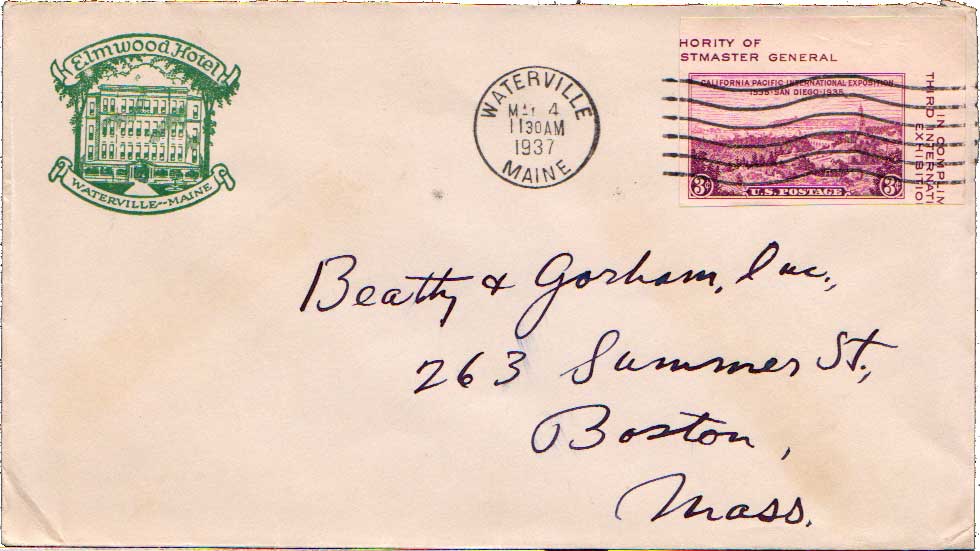 Elmwood Hotel
WATERVILLE--MAINE
WATERVILLE
MAY 4
11 30 AM
1937
MAINE
HORITY OF
STMASTER GENERAL
CALIFORNIA PACIFIC INTERNATIONAL EXPOSITION
1935-SAN DIEGO-1935
3¢ U.S. POSTAGE 3¢
IN COMPLIM
THIRD INTERNATI
EXHIBITIO
Beatty & Gorham, Inc.,
263 Summer St.,
Boston,
Mass.